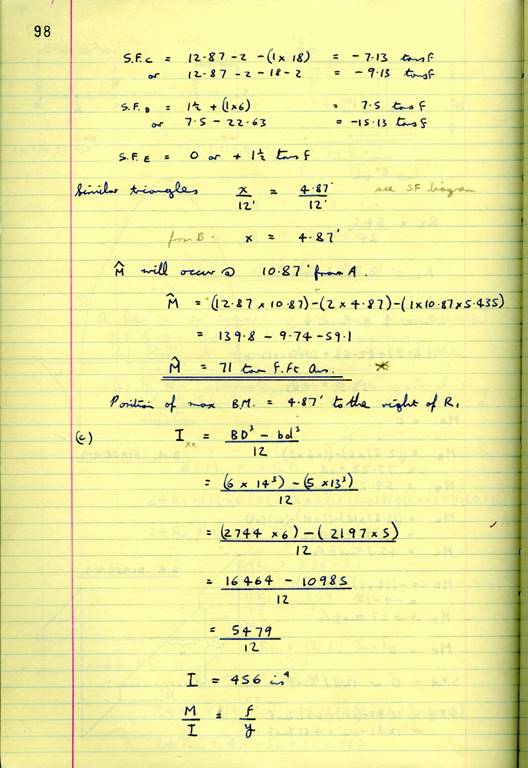 98
S.F.C = 12.87-2-(1x18) = -7.13 tonsf
or 12.87-2-18-2 = -9.13 tonsf
S.F.D = 1½ + (1x6) = 7.5 tonsf
or 7.5-22.63 = -15.13 tonsf
S.F.E = 0 or + 1½ tonsf
Similar triangles x/12' = 4.87'/12' see SF diagram
from B. x = 4.87'
M̂ will occur @ 10.87' from A.
M̂ = (12.87 x 10.87)-(2 x 4.87)-(1x10.87x5.435)
= 139.8 - 9.74 - 59.1
M̂ = 71 tonf.ft Ans.
Position of max B.M. = 4.87' to the right of R₁
(c) Ixx = BD³ - bd³/12
= (6 x 14³) - (5 x 13³)/12
= (2744 x 6) - (2197 x 5)/12
= 16464 - 10985/12
= 5479/12
I = 456 in⁴
M/I = f/y